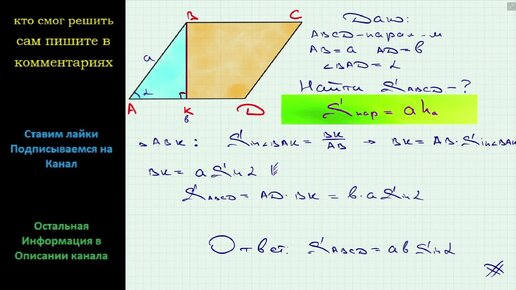 кто смог решить
сам пишите в
комментариях
Ставим лайки
Подписываемся на
Канал
Остальная
Информация в
Описании канала
B
C
a
α
A
K
D
в
Дано:
ABCD-парал-м
AB=a AD=в
∠BAD=α
Найти S ABCD-?
S пар = a hₐ
△ABK: Sin∠BAK = BK/AB → BK=AB·Sin∠BAK
BK = a Sinα
S ABCD = AD·BK = в·a Sinα
Ответ: S ABCD = aв Sinα